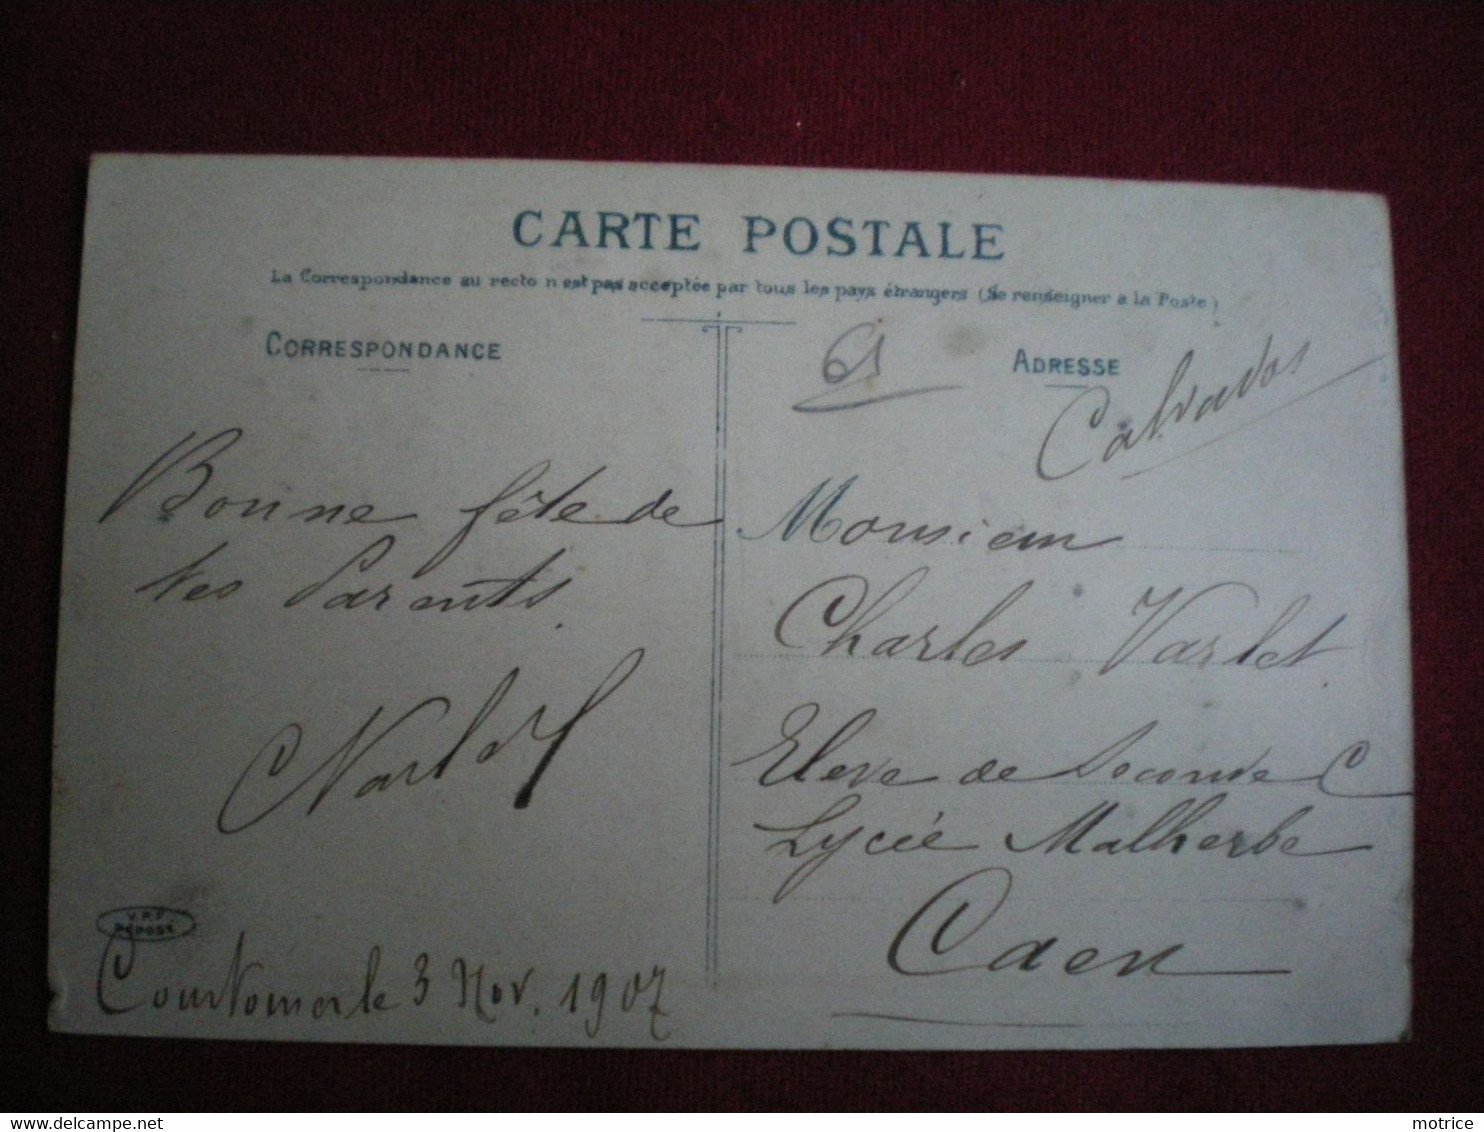 CARTE POSTALE
La Correspondance au recto n est pas acceptée par tous les pays étrangers (Se renseigner a la Poste)
CORRESPONDANCE
Bonne fête de
tes Parents.
Varlet
V.P.F.
DÉPOSÉ
Courtomer le 3 Nov. 1907
61
ADRESSE
Calvados
Monsieur
Charles Varlet
Eleve de Seconde C
Lycée Malherbe
Caen
motrice